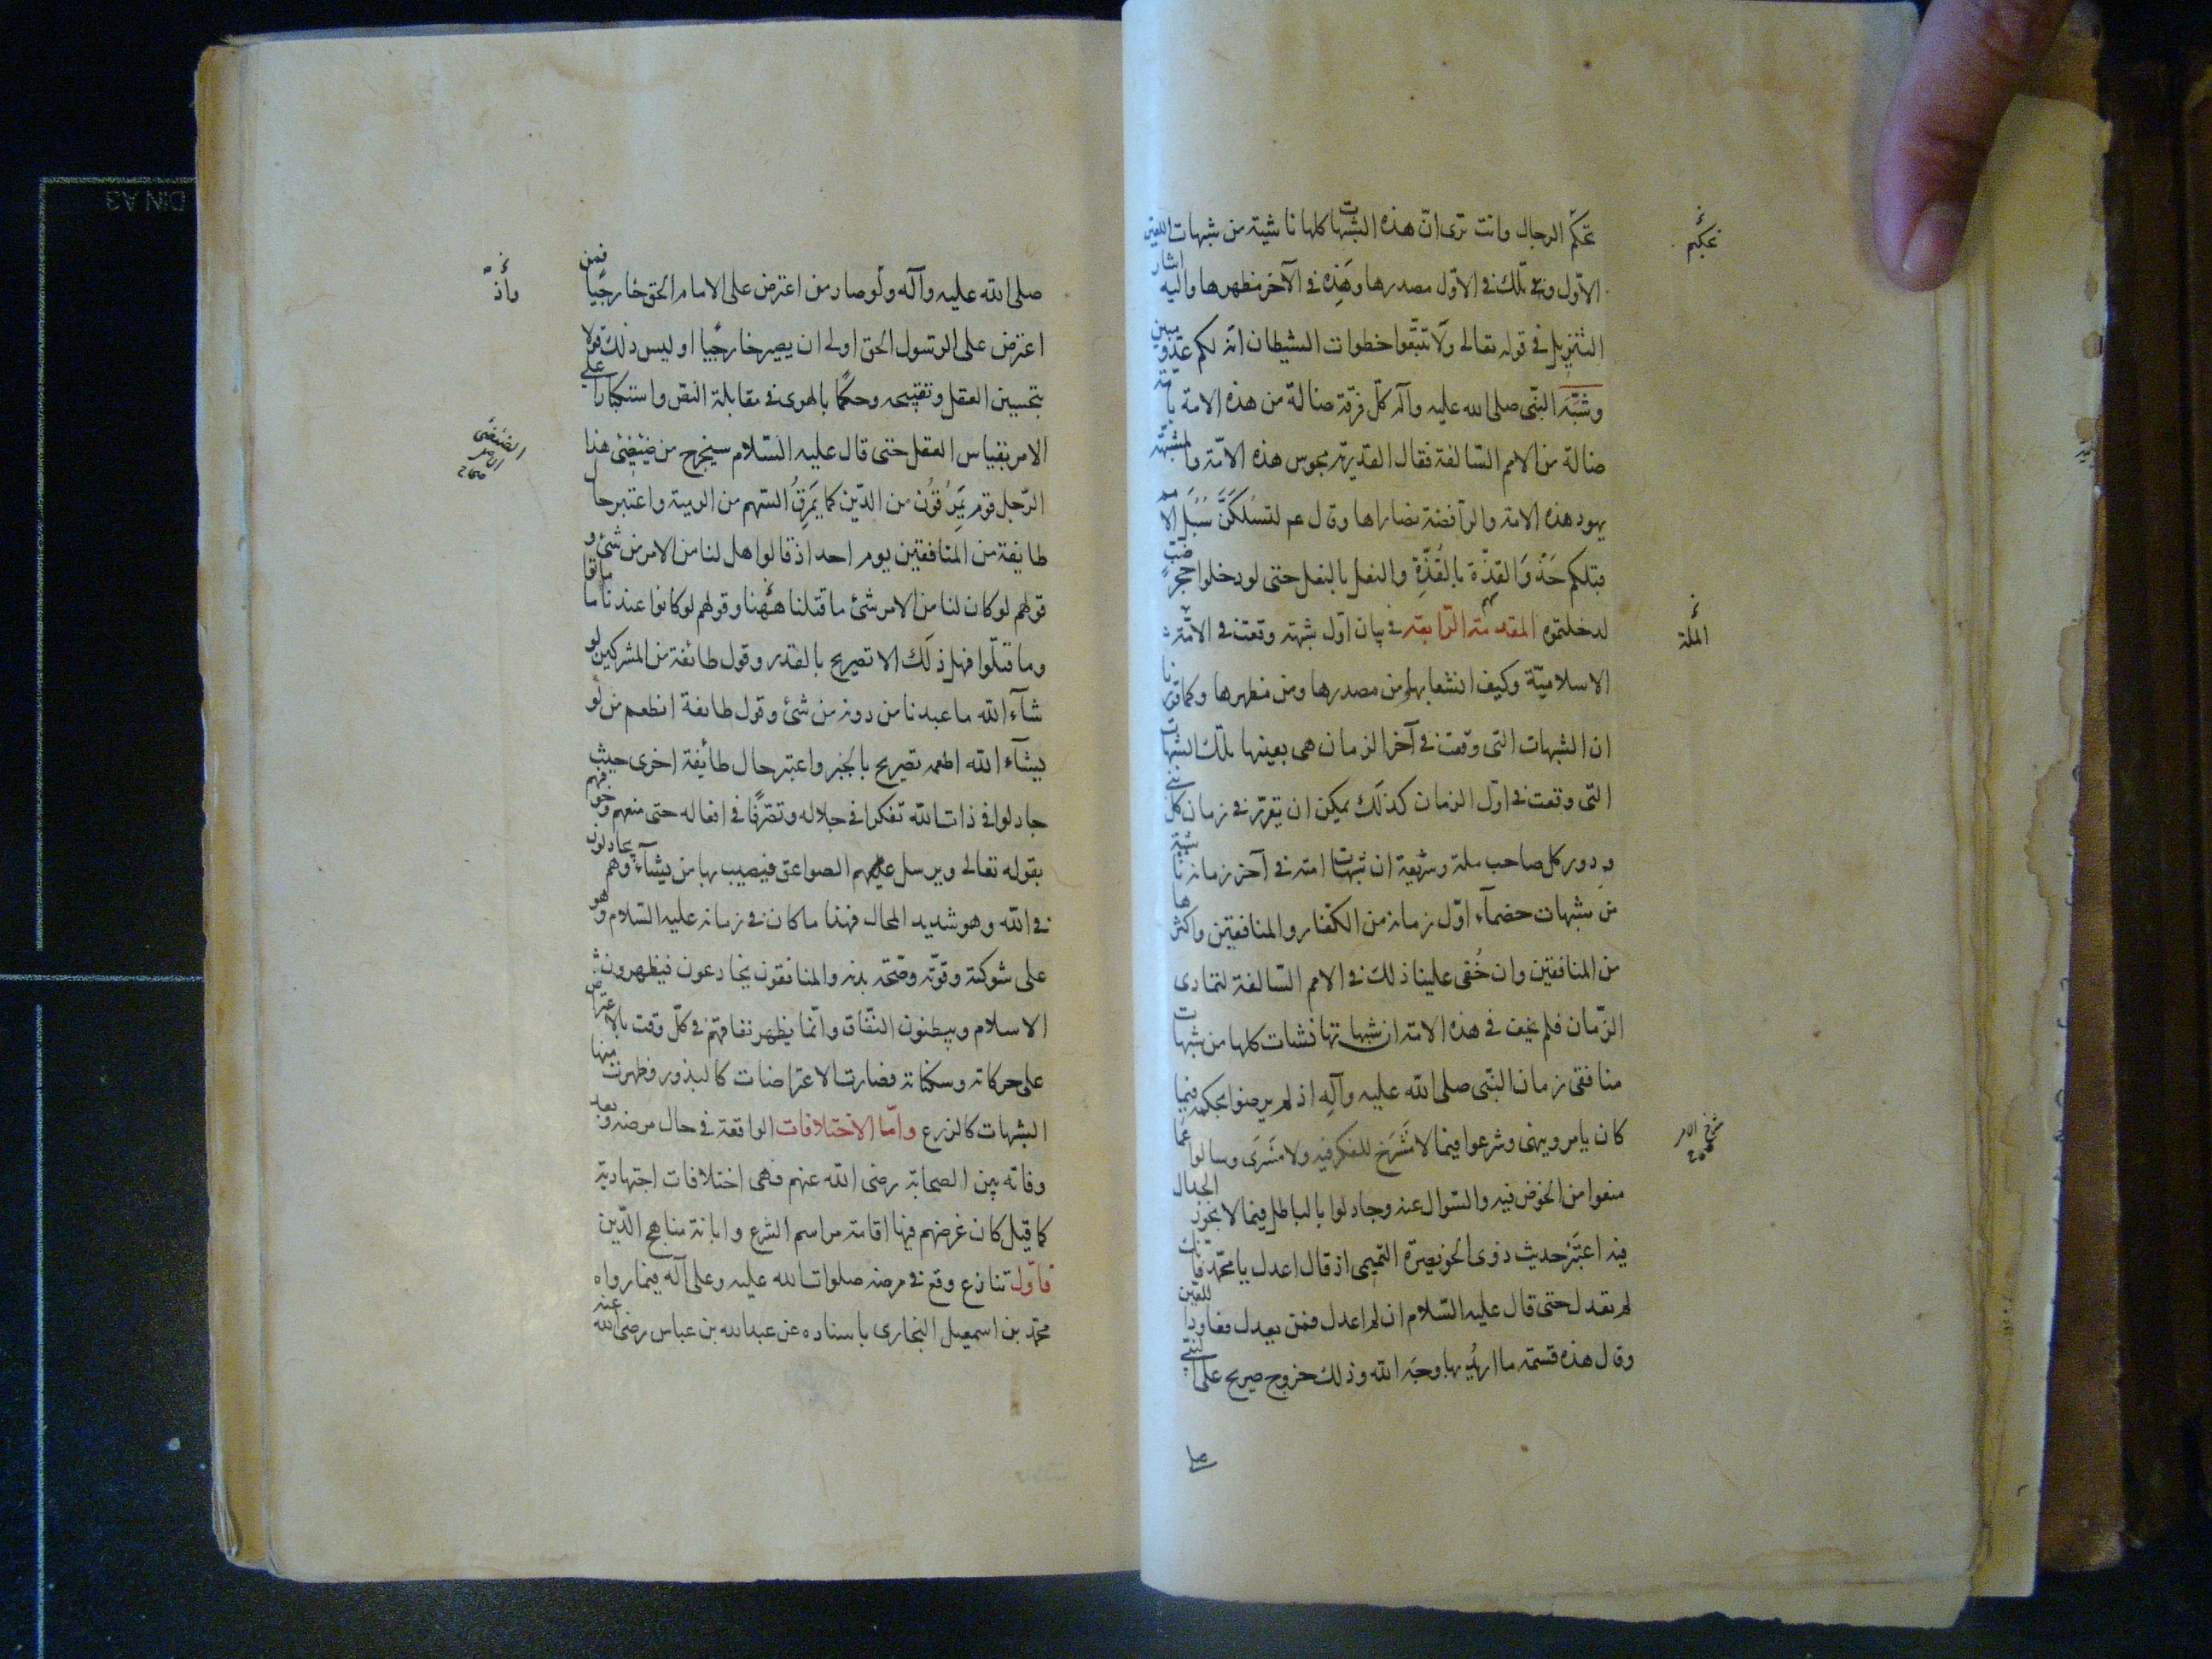 تحكم الرجال وانت ترى انّ هذه الشبهات كلها ناشية من شبهات اللعين
الاول وتلك فى الاوّل مصدرها وهَذِه فى الآخر مظهرها واليه اشار
التنزيل فى قوله تعالى ولا تتّبعوا خطوات الشيطان انه لكم عدو مبين
وشَبَّهَ النبّى صلى الله عليه وآله كلّ فرقة ضالة من هذه الامة بامّة
ضالة من الامم السّالفة فقال القدريّة مجوس هذه الامّة والمشبّهة
يهود هذه الامة والرافضة نصاراها وقال عم لتسْلكنّ سُبُلَ الامم
قبلكم حَذْوَ القذّة بالقُذّةِ والنعل بالنعل حتى لو دخلوا جحر ضبّ
لدخلتموه المقدمة الرّابعة فى بيان اوّل شبهة وقعت فى الامّة
الاسلاميّة وكيف انشعابها من مصدرها ومن مظهرها وكما قررنا
ان الشبهات التى وقعت فى آخر الزمان هى بعينها تلك الشبهات
التى وقعت فى اوّل الزمان كذلك يمكن ان يقرّر فى زمان كل نبى
ودور كل صاحب ملة وشريعة ان شبهات امته فى آخر زمانه ناشية
من شبهات خصمآء اوّل زمانه من الكفار والمنافقين واكثرها
من المنافقين وان خُفى علينا ذلك فى الامم السّالفة لتمادى
الزّمان فلم يخف فى هذه الامة ان شبهاتها نشات كلها من شبهات
منافقى زمان النبّى صلى الله عليه وآلِه اذ لم يرضوا بحكمه فيما
كان يامر وينهى وشرعوا فيما لا مَشْرَخ للفكر فيه ولا مَسْرَى وسالوا عمّا
منعوا من الخوض فيه والسّوال عنه وجادلوا بالباطل فيما لا يجوز الجدال
فيه اعتَبَرْ حديث ذوى الخويصرة التّميمى اذ قال اعدل يا محمّد فانك
لم تعدل حتى قال عليه السّلام ان لم اعدل فمن يعدل فعاود اللعين
وقال هذه قسمة ما اريد بها وجه الله وذلك خروج صريح على النبّى
تحكم
الملّة
صلى
صلى الله عليه وآله ولو صار من اعترض على الامام الحق خارجيّا فمن
اعترض على الرّسول الحق اولى ان يصير خارجيّا او ليس ذلك قولا
بتحسين العقل وتقبيحه وحكمًا بالهوى فى مقابلة النصّ واستكبارا على
الامر بقياس العقل حتى قال عليه السّلام سيخرج من ضئضئ هذا
الرّجل قوم يَمْرُقُون من الدّين كما يَمْرقُ السّهم من الرمية واعتبر حال
طايفة من المنافقين يوم احد اذ قالوا هل لنا من الامر من شئ و
قولهم لو كان لنا من الامر شئ ما قتلنا ههُنا وقولهم لو كانوا عندنا ما ماتوا
وما قتلوا فهل ذلك الا تصريح بالقدر وقول طائفة من المشركين لو
شآء الله ما عبدنا من دونه من شئ وقول طائفة انطعم من لو
يشآء الله اطعمه تصريح بالجبر واعتبر حال طائيفة اخرى حيث
جادلوا فى ذات الله تفكرا فى جلاله وتصّرفًا فى افعاله حتى منعهم وخوّفهم
بقوله تعالى ويرسل عليهم الصواعق فيصيب بها من يشآء وهم يجادلون
فى الله وهو شديد المحال فهذا ما كان فى زمانه عليه السّلام وهو
على شوكته وقوّته وصحّة بدنه والمنافقون يخادعون فيظهرون
الاسلام ويبطنون النّفاق وانّما يظهر نفاقهم فى كلّ وقت بالاعتراض
على حركاته وسكناته فصارت الاعتراضات كالبذور فظهرت منها
الشبهات كالزرع وامّا الاختلافات الواقعة فى حال مرضه وبعد
وفاته بين الصحابة رضى الله عنهم فهى اختلافات اجتهادية
كما قيل كان غرضهم فيها اقامة مراسم الشرع وابانة مناهج الدّين
فاوّل تنازع وقع فى مرضه صلوات الله عليه وعلى آله فيما رواه
محمّد بن اسمعيل البخارى باسناده عن عبد الله بن عباس رضى الله عنه
الضئضئ